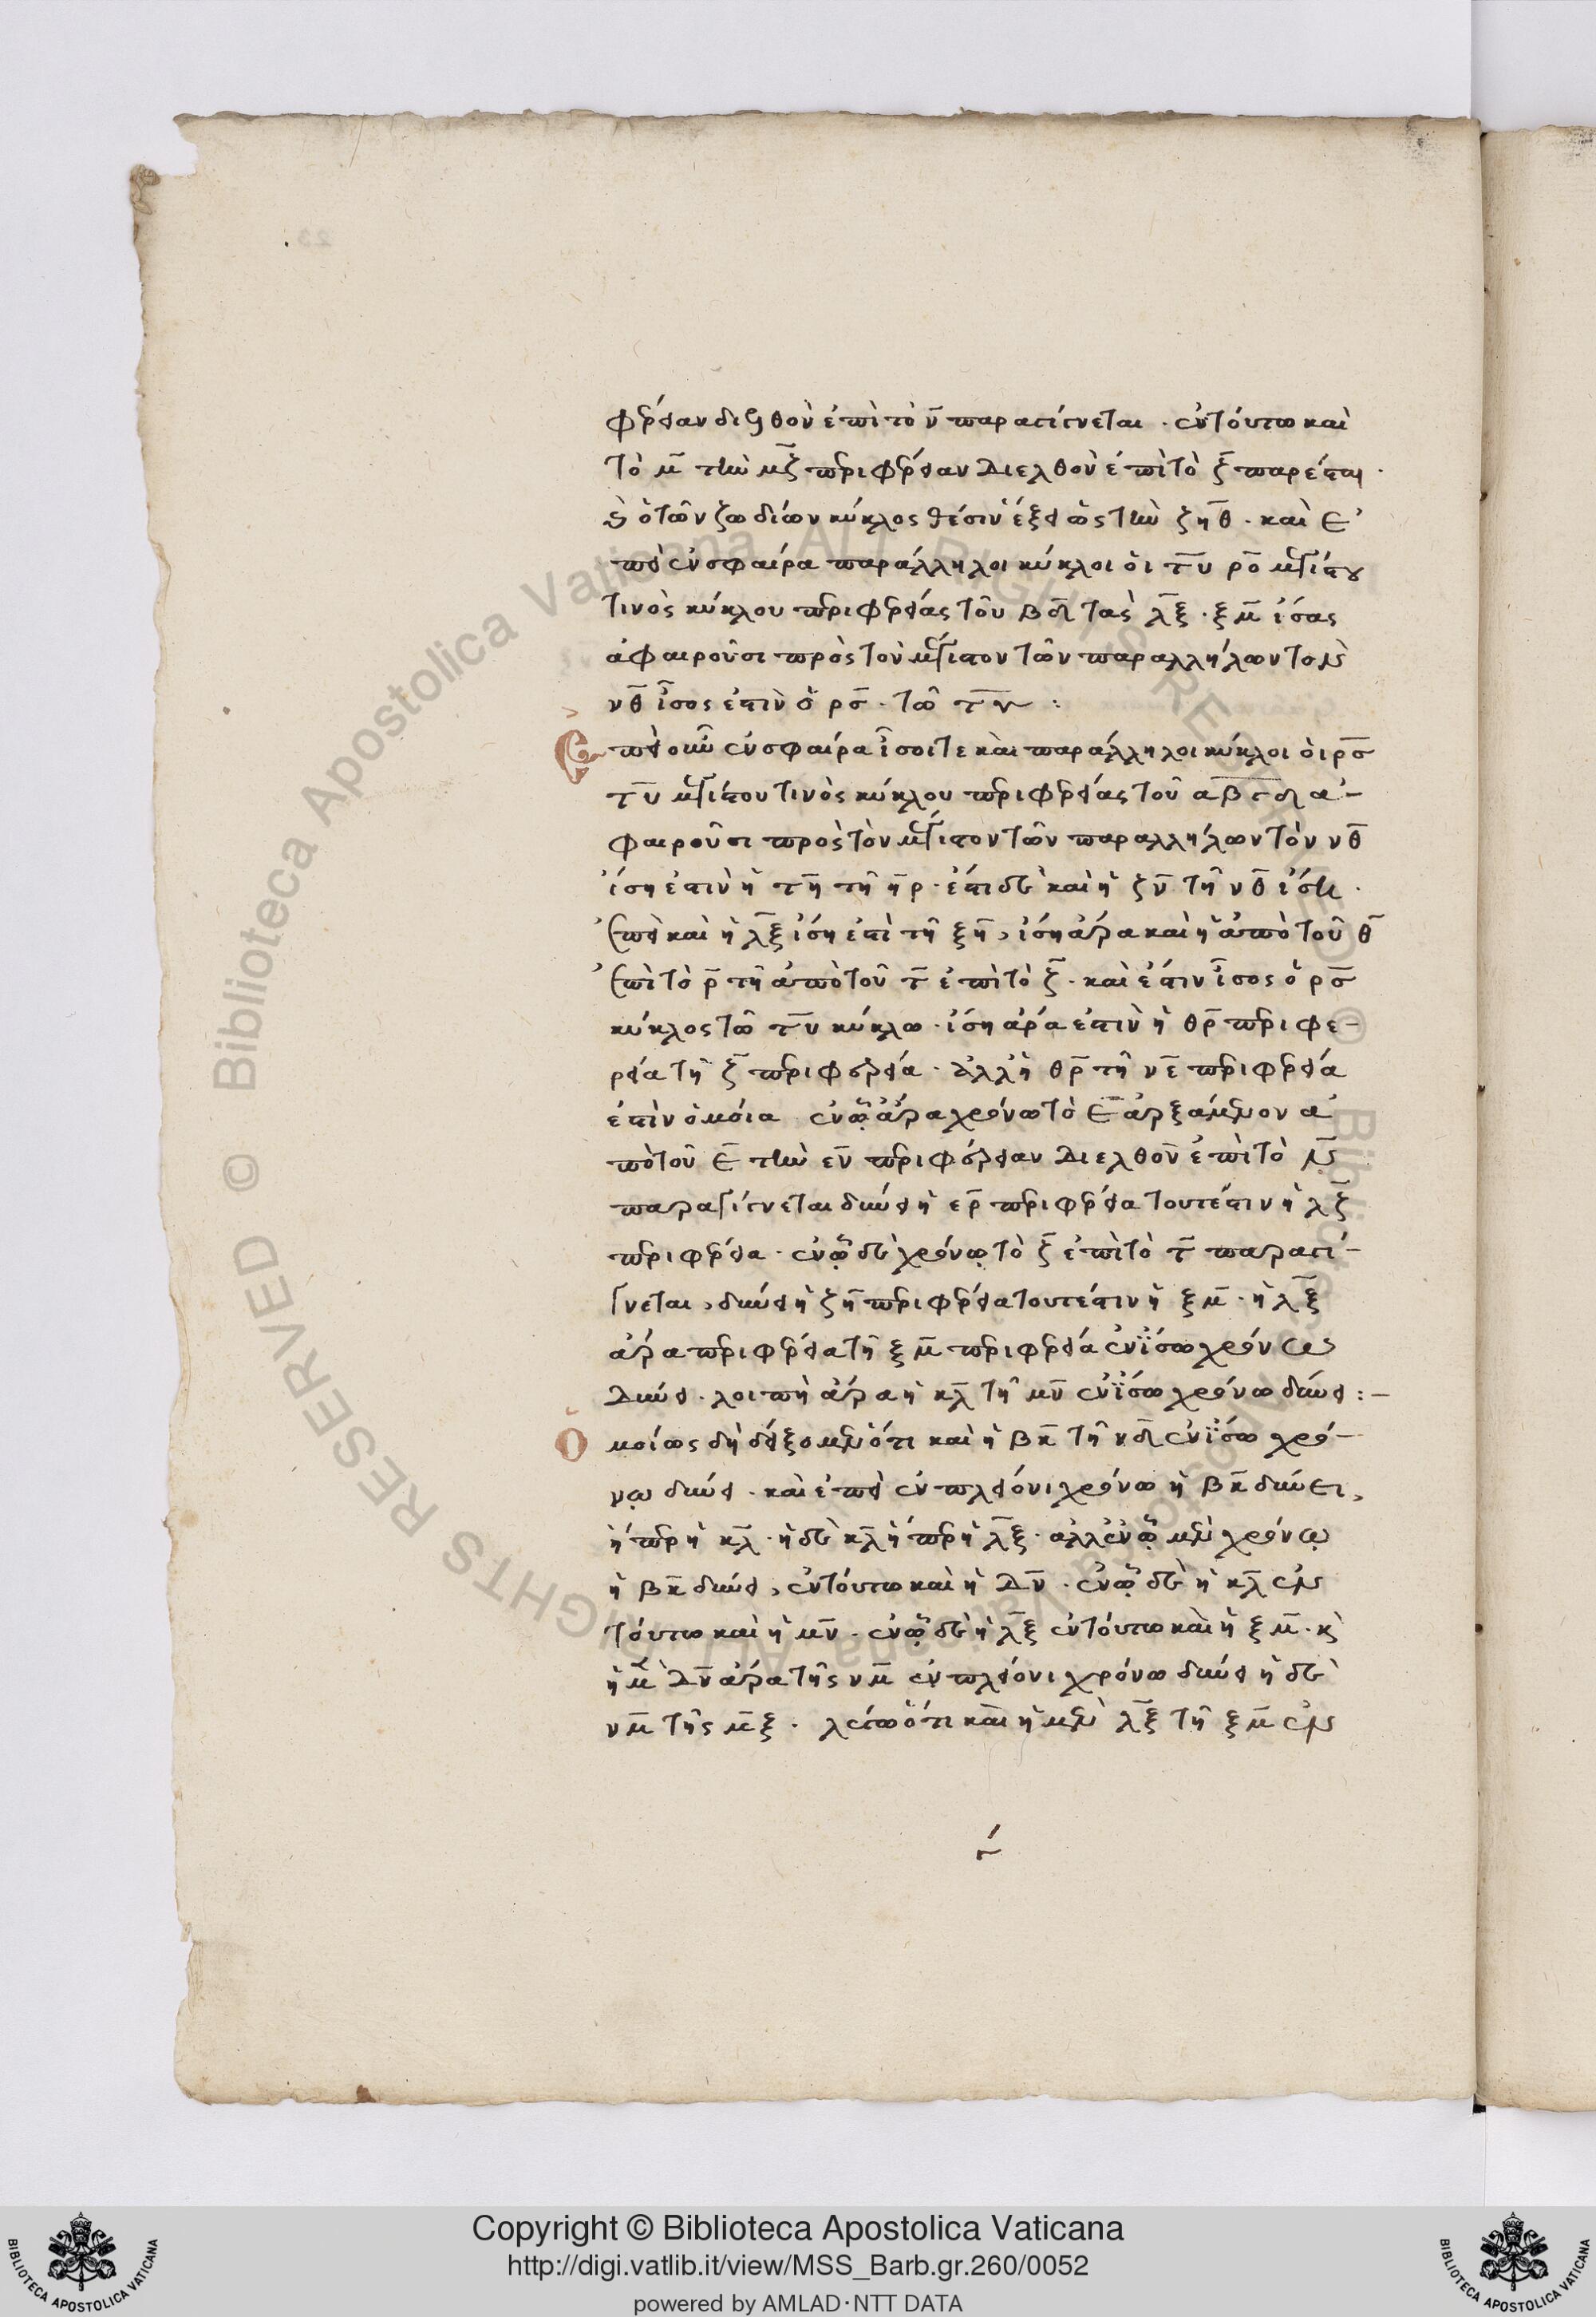 φέρειαν διελθὸν ἐπὶ τὸ ν παραγίγνεται · ἐν τούτω καὶ
τὸ μ τὴν μζ περιφέρειαν διελθὸν ἐπὶ τὸ ζ παρέσται ·
ὁ τῶν ζωδίων κύκλος θέσιν ἕξει ὡς τὴν ζηθ · καὶ ἐ
πεὶ ἐν σφαίρα παράλληλοι κύκλοι οἱ τυ ρο μεγίστου
τινὸς κύκλου περιφερείας τοῦ βδ τὰς λξ · ξμ ἴσας
ἀφαιροῦσι πρὸς τὸν μέγιστον τῶν παραλλήλων τὸν
νθ ἴσος ἐστὶν ὁ ρσ · τῶ τυ :
Ἐπεὶ οὖν ἐν σφαίρα ἴσοι τε καὶ παράλληλοι κύκλοι οἱ ρσ
τυ μεγίστου τινὸς κύκλου περιφερείας τοῦ αβγδ ἀ-
φαιροῦσι πρὸς τὸν μέγιστον τῶν παραλλήλων τὸν νθ
ἴση ἐστὶν ἡ τη τῆ ηρ · ἔστι δὲ καὶ ἡ ζν τῆ νθ ἴση ·
ἐπεὶ καὶ ἡ λξ ἴση ἐστὶ τῆ ξη, ἴση ἄρα καὶ ἡ ἀπὸ τοῦ θ
ἐπὶ τὸ ρ τῆ ἀπὸ τοῦ τ ἐπὶ τὸ ζ · καὶ ἔστιν ἴσος ὁ ρσ
κύκλος τῶ τυ κύκλω · ἴση ἄρα ἐστὶν ἡ θρ περιφε-
ρεία τῆ ζ περιφερεία · ἀλλ' ἡ θρ τῆ νε περιφερεία
ἐστὶν ὁμοία ἐν ᾧ ἄρα χρόνω τὸ ε ἀρξάμενον ἀ
πὸ τοῦ ε τὴν εν περιφέρειαν διελθὸν ἐπὶ τὸ ν
παραγίγνεται δύνει ἡ ερ περιφέρεια τουτέστιν ἡ λζ
περιφέρεια · ἐν ᾧ δὲ χρόνῳ τὸ ζ ἐπὶ τὸ τ παραγί-
γνεται, δύνει ἡ ζη περιφέρεια τουτέστιν ἡ ξμ · ἡ λξ
ἄρα περιφέρεια τῆ ξμ περιφερεία ἐν ἴσω χρόνω
δύνει · λοιπὴ ἄρα ἡ κλ τῆ μν ἐν ἴσω χρόνω δύνει :-
Ὁμοίως δὴ δείξομεν ὅτι καὶ ἡ βκ τῆ νδ ἐν ἴσω χρό-
νῳ δύνει · καὶ ἐπεὶ ἐν πλείονι χρόνω ἡ βκ δύνει,
ἤπερ ἡ κλ · ἡ δὲ κλ ἤπερ ἡ λξ · ἀλλ' ἐν ᾧ μὲν χρόνῳ
ἡ βκ δύνει, ἐν τούτω καὶ ἡ δν · ἐν ᾧ δὲ ἡ κλ ἐν
τούτω καὶ ἡ μν · ἐν ᾧ δὲ ἡ λξ ἐν τούτω καὶ ἡ ξμ · καὶ
ἡ μὲν δν ἄρα τῆς νμ ἐν πλείονι χρόνω δύνει ἡ δὲ
νμ τῆς μξ · λέγω ὅτι καὶ ἡ μὲν λξ τῆ ξμ ἐν
Copyright © Biblioteca Apostolica Vaticana
http://digi.vatlib.it/view/MSS_Barb.gr.260/0052
powered by AMLAD·NTT DATA